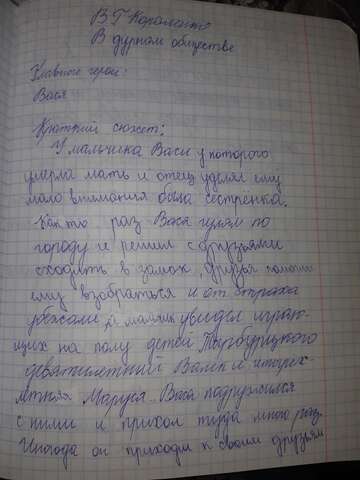 В Г Короленко
В дурном обществе
Главные герои:
Вася
Краткий сюжет:
У мальчика Васи у которого
умерла мать и отец уделял ему
мало внимания была сестрёнка.
Как то раз Вася гулял по
городу и решил с друзьями
сходить в замок, друзья помогли
ему взобраться и от страха
убежали, а мальчик увидел играю-
щих на полу детей Тыбурцкого
девятилетний Валек и четырех-
летняя Маруся. Вася подружился
с ними и приходил туда много раз.
Иногда он приходил к своим друзьям